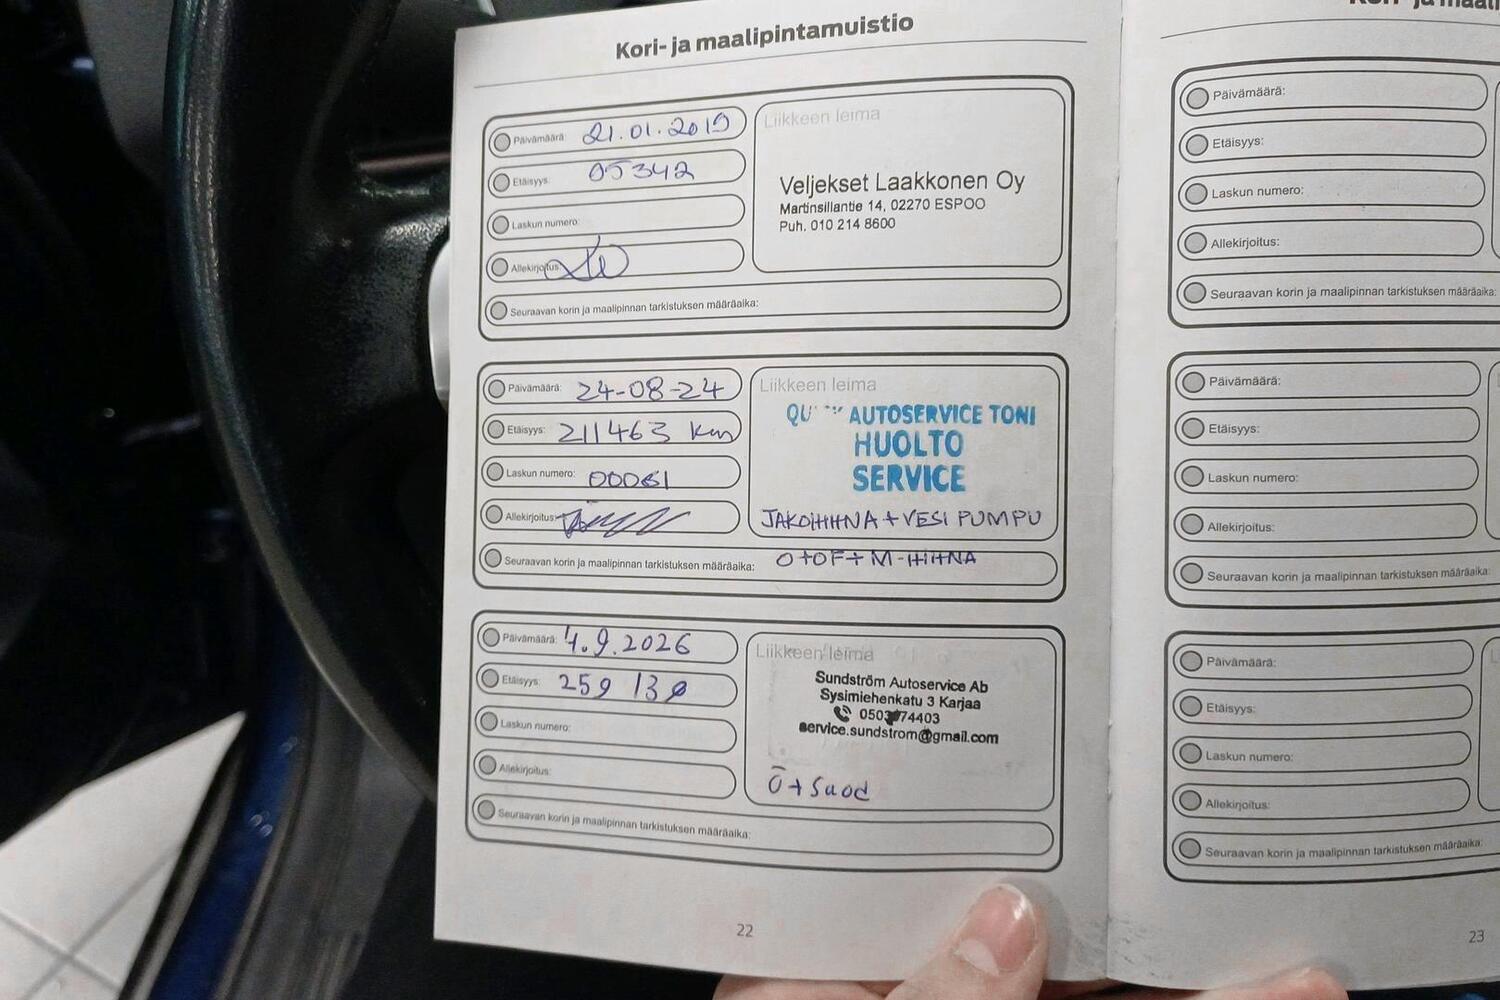 Kori- ja maalipintamuistio
Päivämäärä: 21.01.2019
Etäisyys: 05342
Laskun numero:
Allekirjoitus:
Seuraavan korin ja maalipinnan tarkistuksen määräaika:
Liikkeen leima
Veljekset Laakkonen Oy
Martinsillantie 14, 02270 ESPOO
Puh. 010 214 8600
Päivämäärä: 24-08-24
Etäisyys: 211463 km
Laskun numero: 00061
Allekirjoitus:
Liikkeen leima
AUTOSERVICE TONI
HUOLTO
SERVICE
JAKOHIHNA + VESI PUMPU
Seuraavan korin ja maalipinnan tarkistuksen määräaika: O+OF+M-HIHNA
Päivämäärä: 4.9.2026
Etäisyys: 259 130
Laskun numero:
Allekirjoitus:
Seuraavan korin ja maalipinnan tarkistuksen määräaika:
Liikkeen leima
Sundström Autoservice Ab
Sysimiehenkatu 3 Karjaa
service.sundstrom@gmail.com
Ö + Suod
22
Päivämäärä:
Etäisyys:
Laskun numero:
Allekirjoitus:
Seuraavan korin ja maalipinnan tarkistuksen määräaika:
Päivämäärä:
Etäisyys:
Laskun numero:
Allekirjoitus:
Seuraavan korin ja maalipinnan tarkistuksen määräaika:
Päivämäärä:
Etäisyys:
Laskun numero:
Allekirjoitus:
Seuraavan korin ja maalipinnan tarkistuksen määräaika:
23